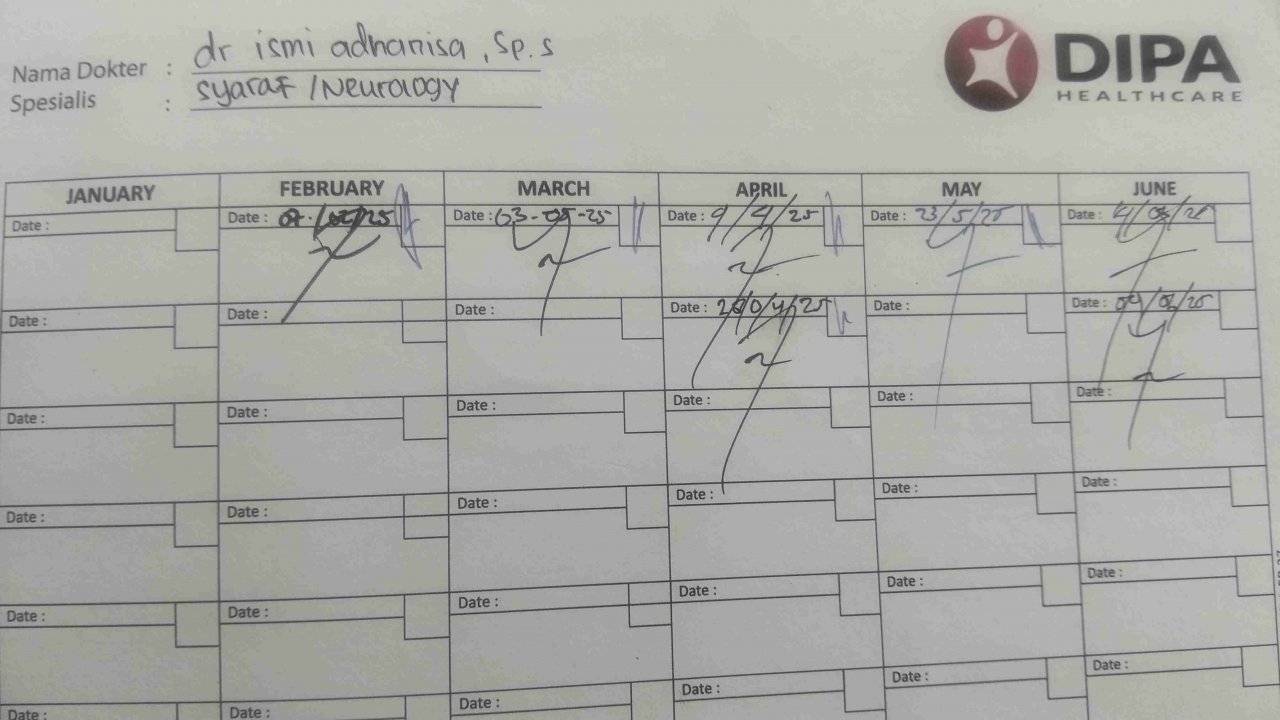 Nama Dokter : dr ismi adhanisa, Sp.s
Spesialis : syaraf / Neurology
DIPA
HEALTHCARE
JANUARY FEBRUARY MARCH APRIL MAY JUNE
Date : Date : Date : 03- -25 Date : 9/4/25 Date : 23/5/25 Date :
Date : Date : Date : Date : Date : Date :
Date : Date : Date : Date : Date : Date :
Date : Date : Date : Date : Date : Date :
Date : Date : Date : Date : Date : Date :
Date : Date : Date : Date : Date :